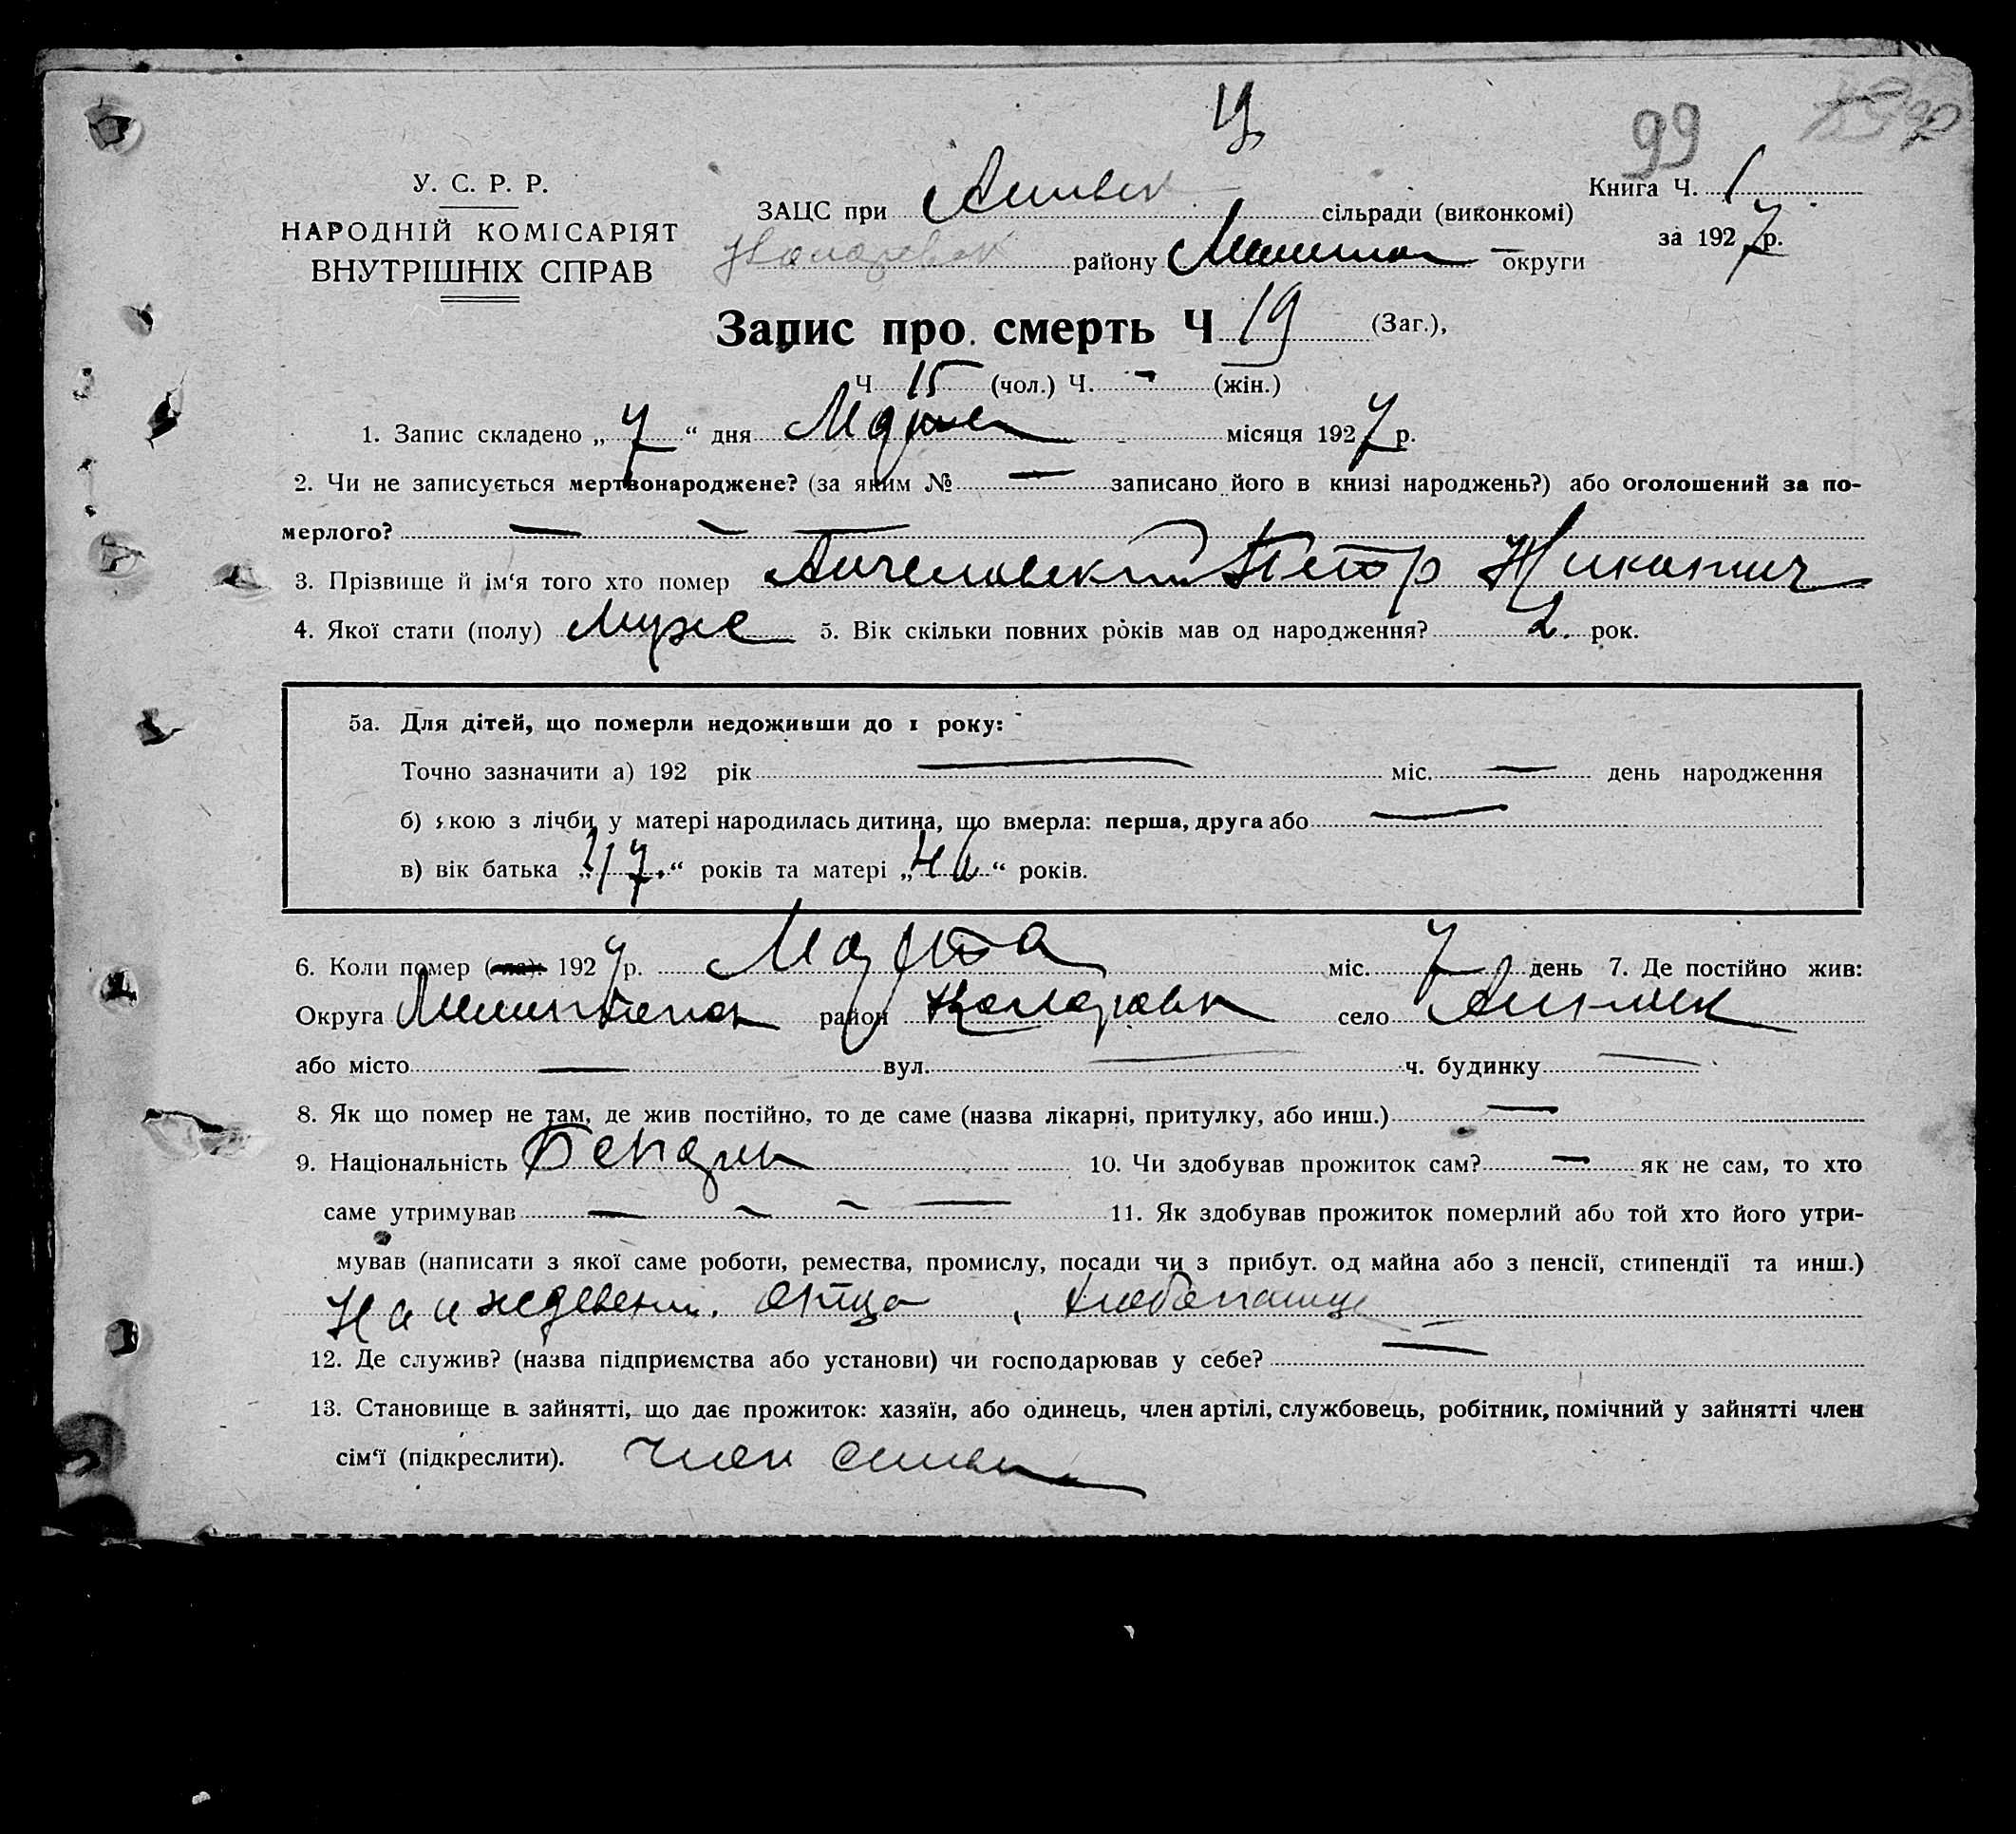 99
У. С. Р. Р.
НАРОДНІЙ КОМІСАРІЯТ
ВНУТРІШНІХ СПРАВ
ЗАЦС при сільради (виконкомі)
району округи
Книга Ч. 1
за 1927 р.
Запис про смерть Ч 19 (Заг.),
Ч 15 (чол.) Ч. - (жін.)
1. Запис складено „ 7 “ дня Марта місяця 1927 р.
2. Чи не записується мертвонароджене? (за яким № — записано його в книзі народжень?) або оголошений за по-
мерлого? — —
3. Прізвище й ім‘я того хто помер Петр
4. Якої стати (полу) Муже 5. Вік скільки повних років мав од народження? 2. рок.
5а. Для дітей, що померли недоживши до 1 року:
Точно зазначити а) 192 рік — міс. — день народження
б) якою з лічби у матері народилась дитина, що вмерла: перша, друга або —
в) вік батька „ “ років та матері „ “ років.
6. Коли помер (ла): 1927 р. Марта міс. 7 день 7. Де постійно жив:
Округа район село
або місто — вул. — ч. будинку —
8. Як що помер не там, де жив постійно, то де саме (назва лікарні, притулку, або инш.) —
9. Національність 10. Чи здобував прожиток сам? — як не сам, то хто
саме утримував — — — — 11. Як здобував прожиток померлий або той хто його утри-
мував (написати з якої саме роботи, ремества, промислу, посади чи з прибут. од майна або з пенсії, стипендії та инш.)
На иждевени. отца
12. Де служив? (назва підприємства або установи) чи господарював у себе? —
13. Становище в зайнятті, що дає прожиток: хазяїн, або одинець, член артілі, службовець, робітник, помічний у зайнятті член
сім‘ї (підкреслити). член семьи